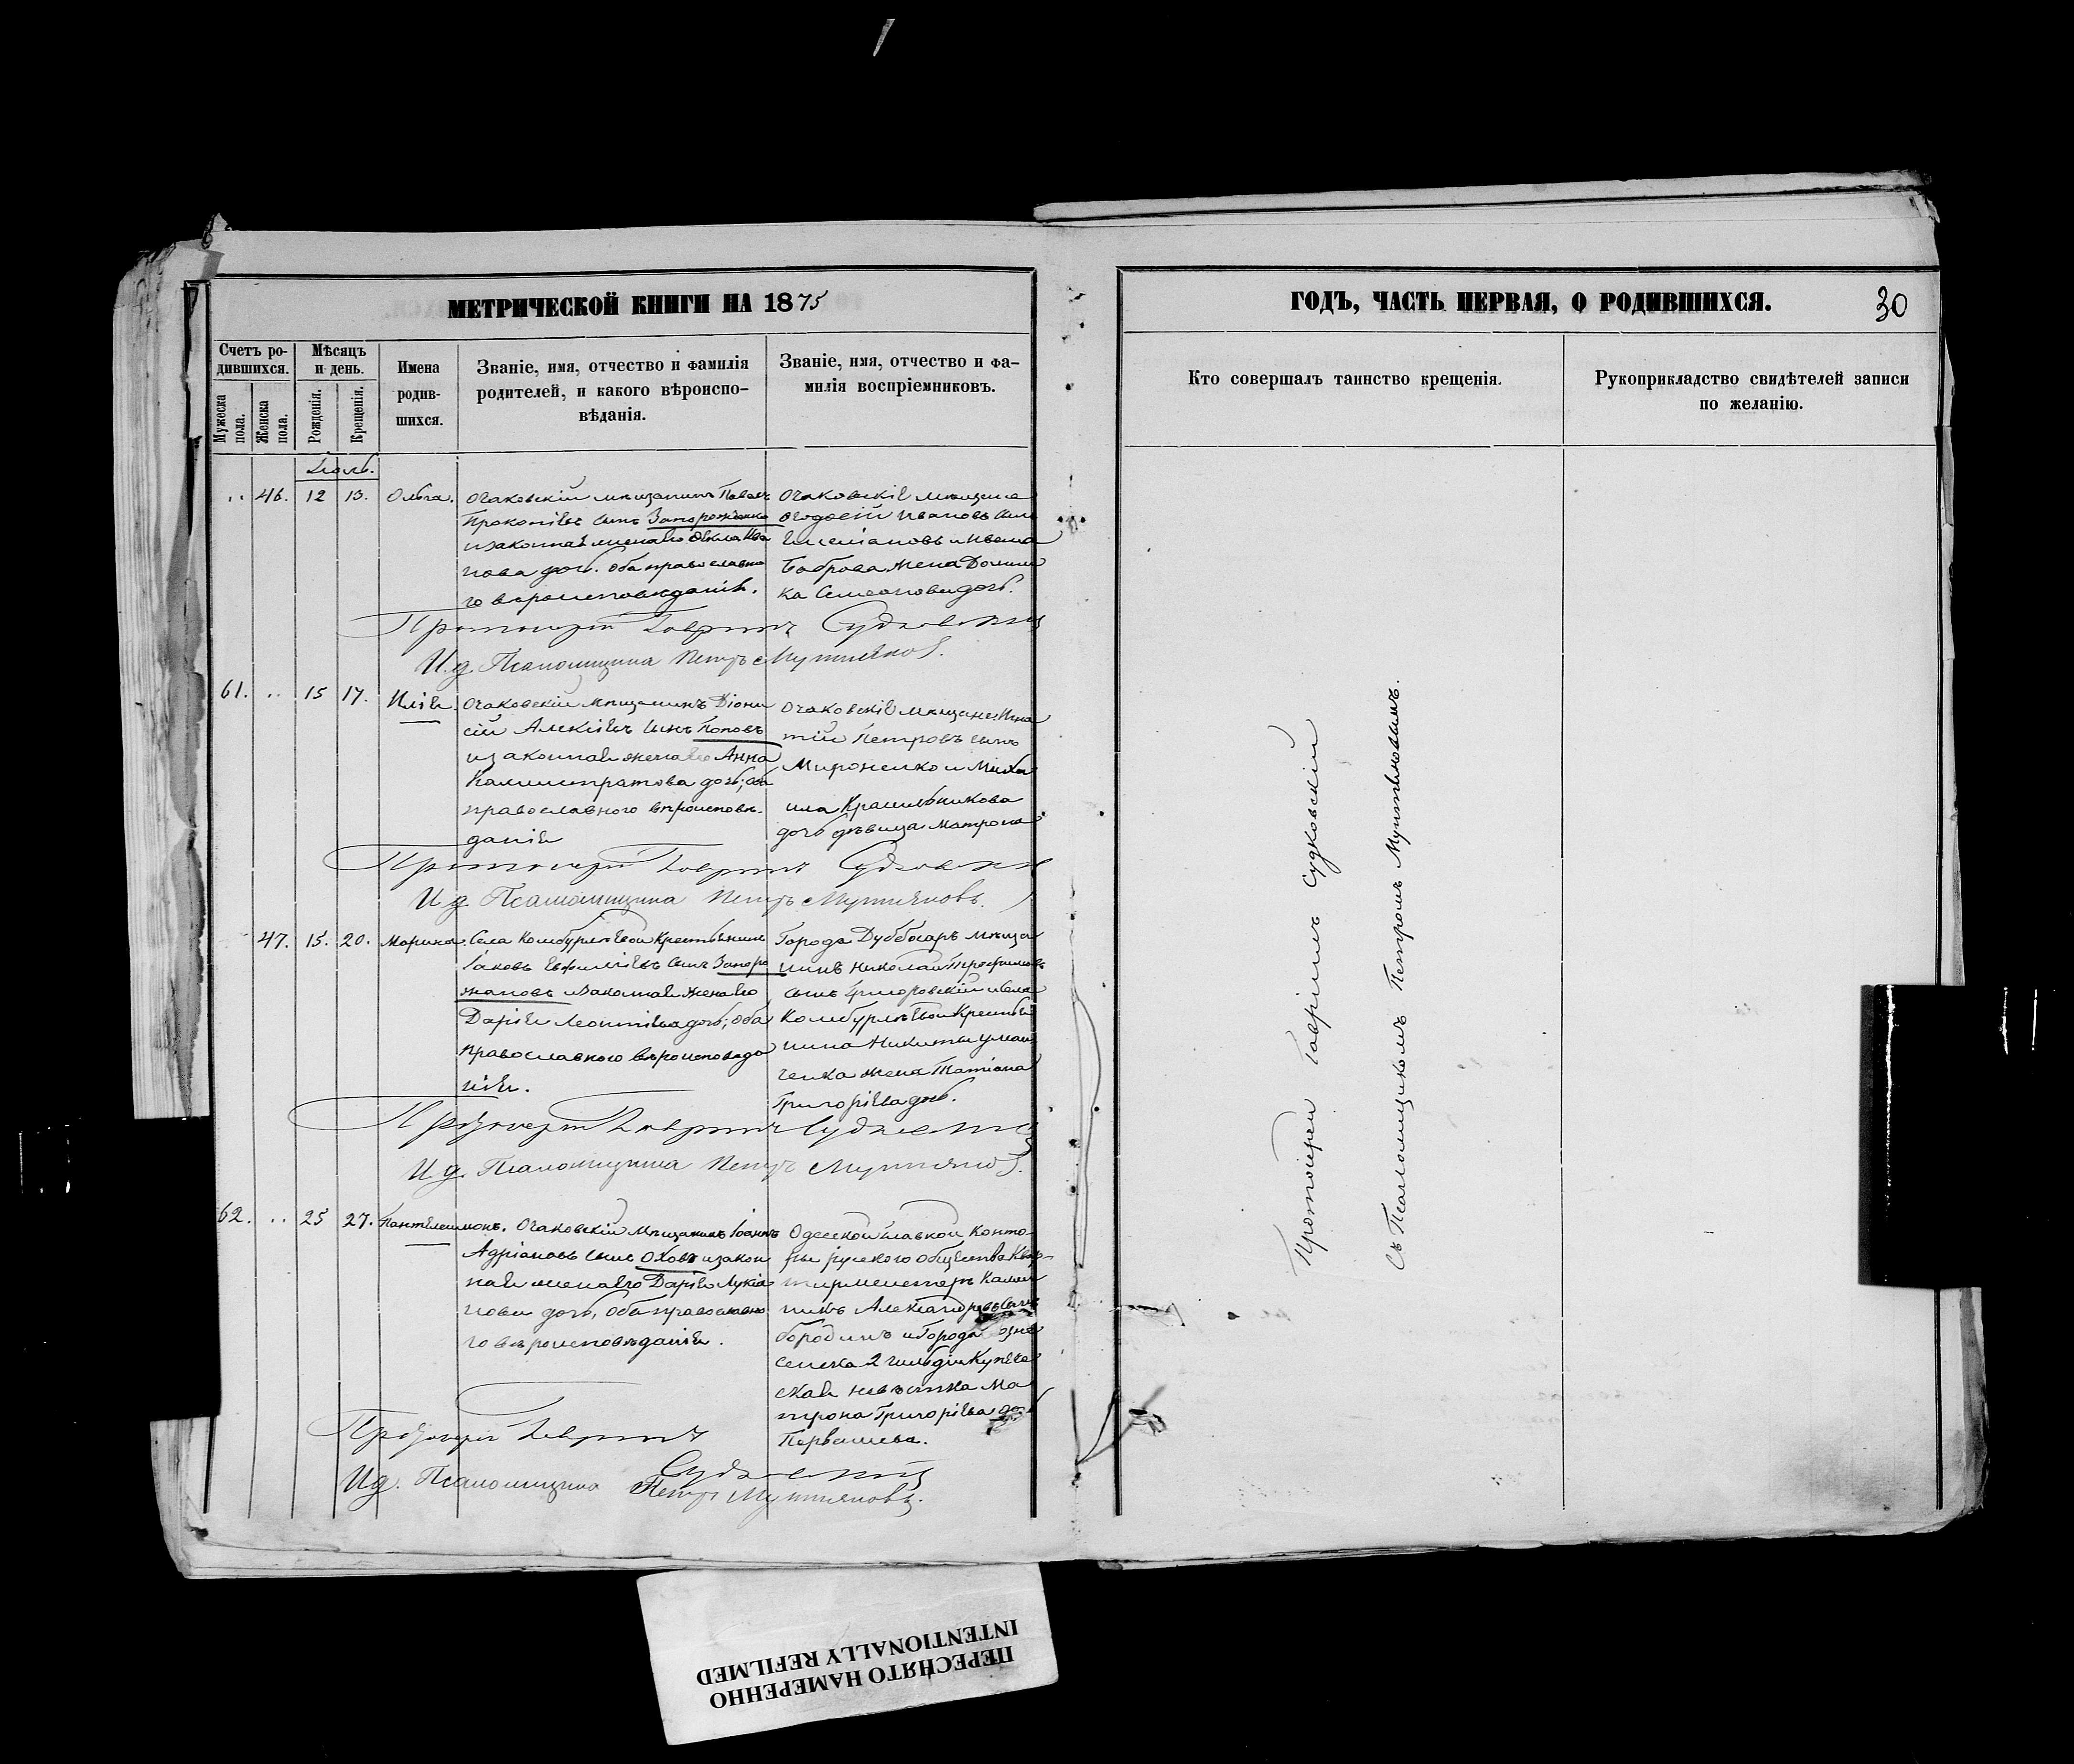 МЕТРИЧЕСКОЙ КНИГИ НА 1875
ГОДЪ, ЧАСТЬ ПЕРВАЯ, О РОДИВШИХСЯ.
30
Счетъ ро-
дившихся.
Мужеска
пола.
Женска
пола.
Мѣсяцъ
и день.
Рожденія.
Крещенія.
Имена
родив-
шихся.
Званіе, имя, отчество и фамилія
родителей, и какого вѣроиспо-
вѣданія.
Званіе, имя, отчество и фа-
милія воспріемниковъ.
Кто совершалъ таинство крещенія.
Рукоприкладство свидѣтелей записи
по желанію.
Іюль.
46. 12 13. Ольга.
Очаковскій мѣщанинъ Павелъ
Прокопіевъ сынъ Запорожченко
и законная жена его Ѳекла Ива
нова дочь. оба православна
го вѣроисповѣданія.
Очаковскіе мѣщане
Ѳеодосій Ивановъ сынъ
и Ивана
Боброва жена Домни
ка Симеонова дочь.
Протоіерей Гавріилъ Судковскій
И. д. Псаломщика Петръ Мутьяновъ.
61. 15 17. Илія.
Очаковскій мѣщанинъ Діони
сій Алексіевъ сынъ Поповъ
и законная жена его Анна
Каллистратова дочь; оба
православнаго вѣроисповѣ-
данія
Очаковскіе мѣщане Игна
тій Петровъ сынъ
Мироненко и Миха
ила Красильникова
дочь дѣвица Матрона
Протоіерей Гавріилъ Судковскій
И. д. Псаломщика Петръ Мутьяновъ.
47. 15. 20. Марина.
Села крестьянинъ
Іаковъ Евфиміевъ сынъ Запоро
жановъ и законная жена его
Дарія Леонтіева дочь; оба
православного вѣроисповѣда
нія.
Города Дубосаръ мѣща
нинъ Николай Трофимовъ
сынъ Григоровскій и села
крестья
нина Никиты Уман
ченка жена Татіана
Григоріева дочь.
Протоіерей Гавріилъ Судковскій
И. д. Псаломщика Петръ Мутьяновъ.
62. 25 27. Пантелеимонъ.
Очаковскій мѣщанинъ Іоаннъ
Адріановъ сынъ Оховъ и закон
ная жена его Дарія Лукіа
нова дочь, оба православна
го вѣроисповѣданія.
Одесской главной Конто-
ры рускаго общества Квар-
тирмейстеръ Калли
никъ Александровъ сынъ
Бородинъ и Города озне
сенска 2 гильдіи Купече
ская невѣстка Ма
трона Григоріева дочь
Первашева.
Протоіерей Гавріилъ
Судковскій
И д. Псаломщика Петръ Мутьяновъ.
Протоіерей Гавріилъ Судковскій
съ Псаломщикомъ Петромъ Мутьяновымъ.
ПЕРЕСНЯТО НАМЕРЕННО
INTENTIONALLY REFILMED